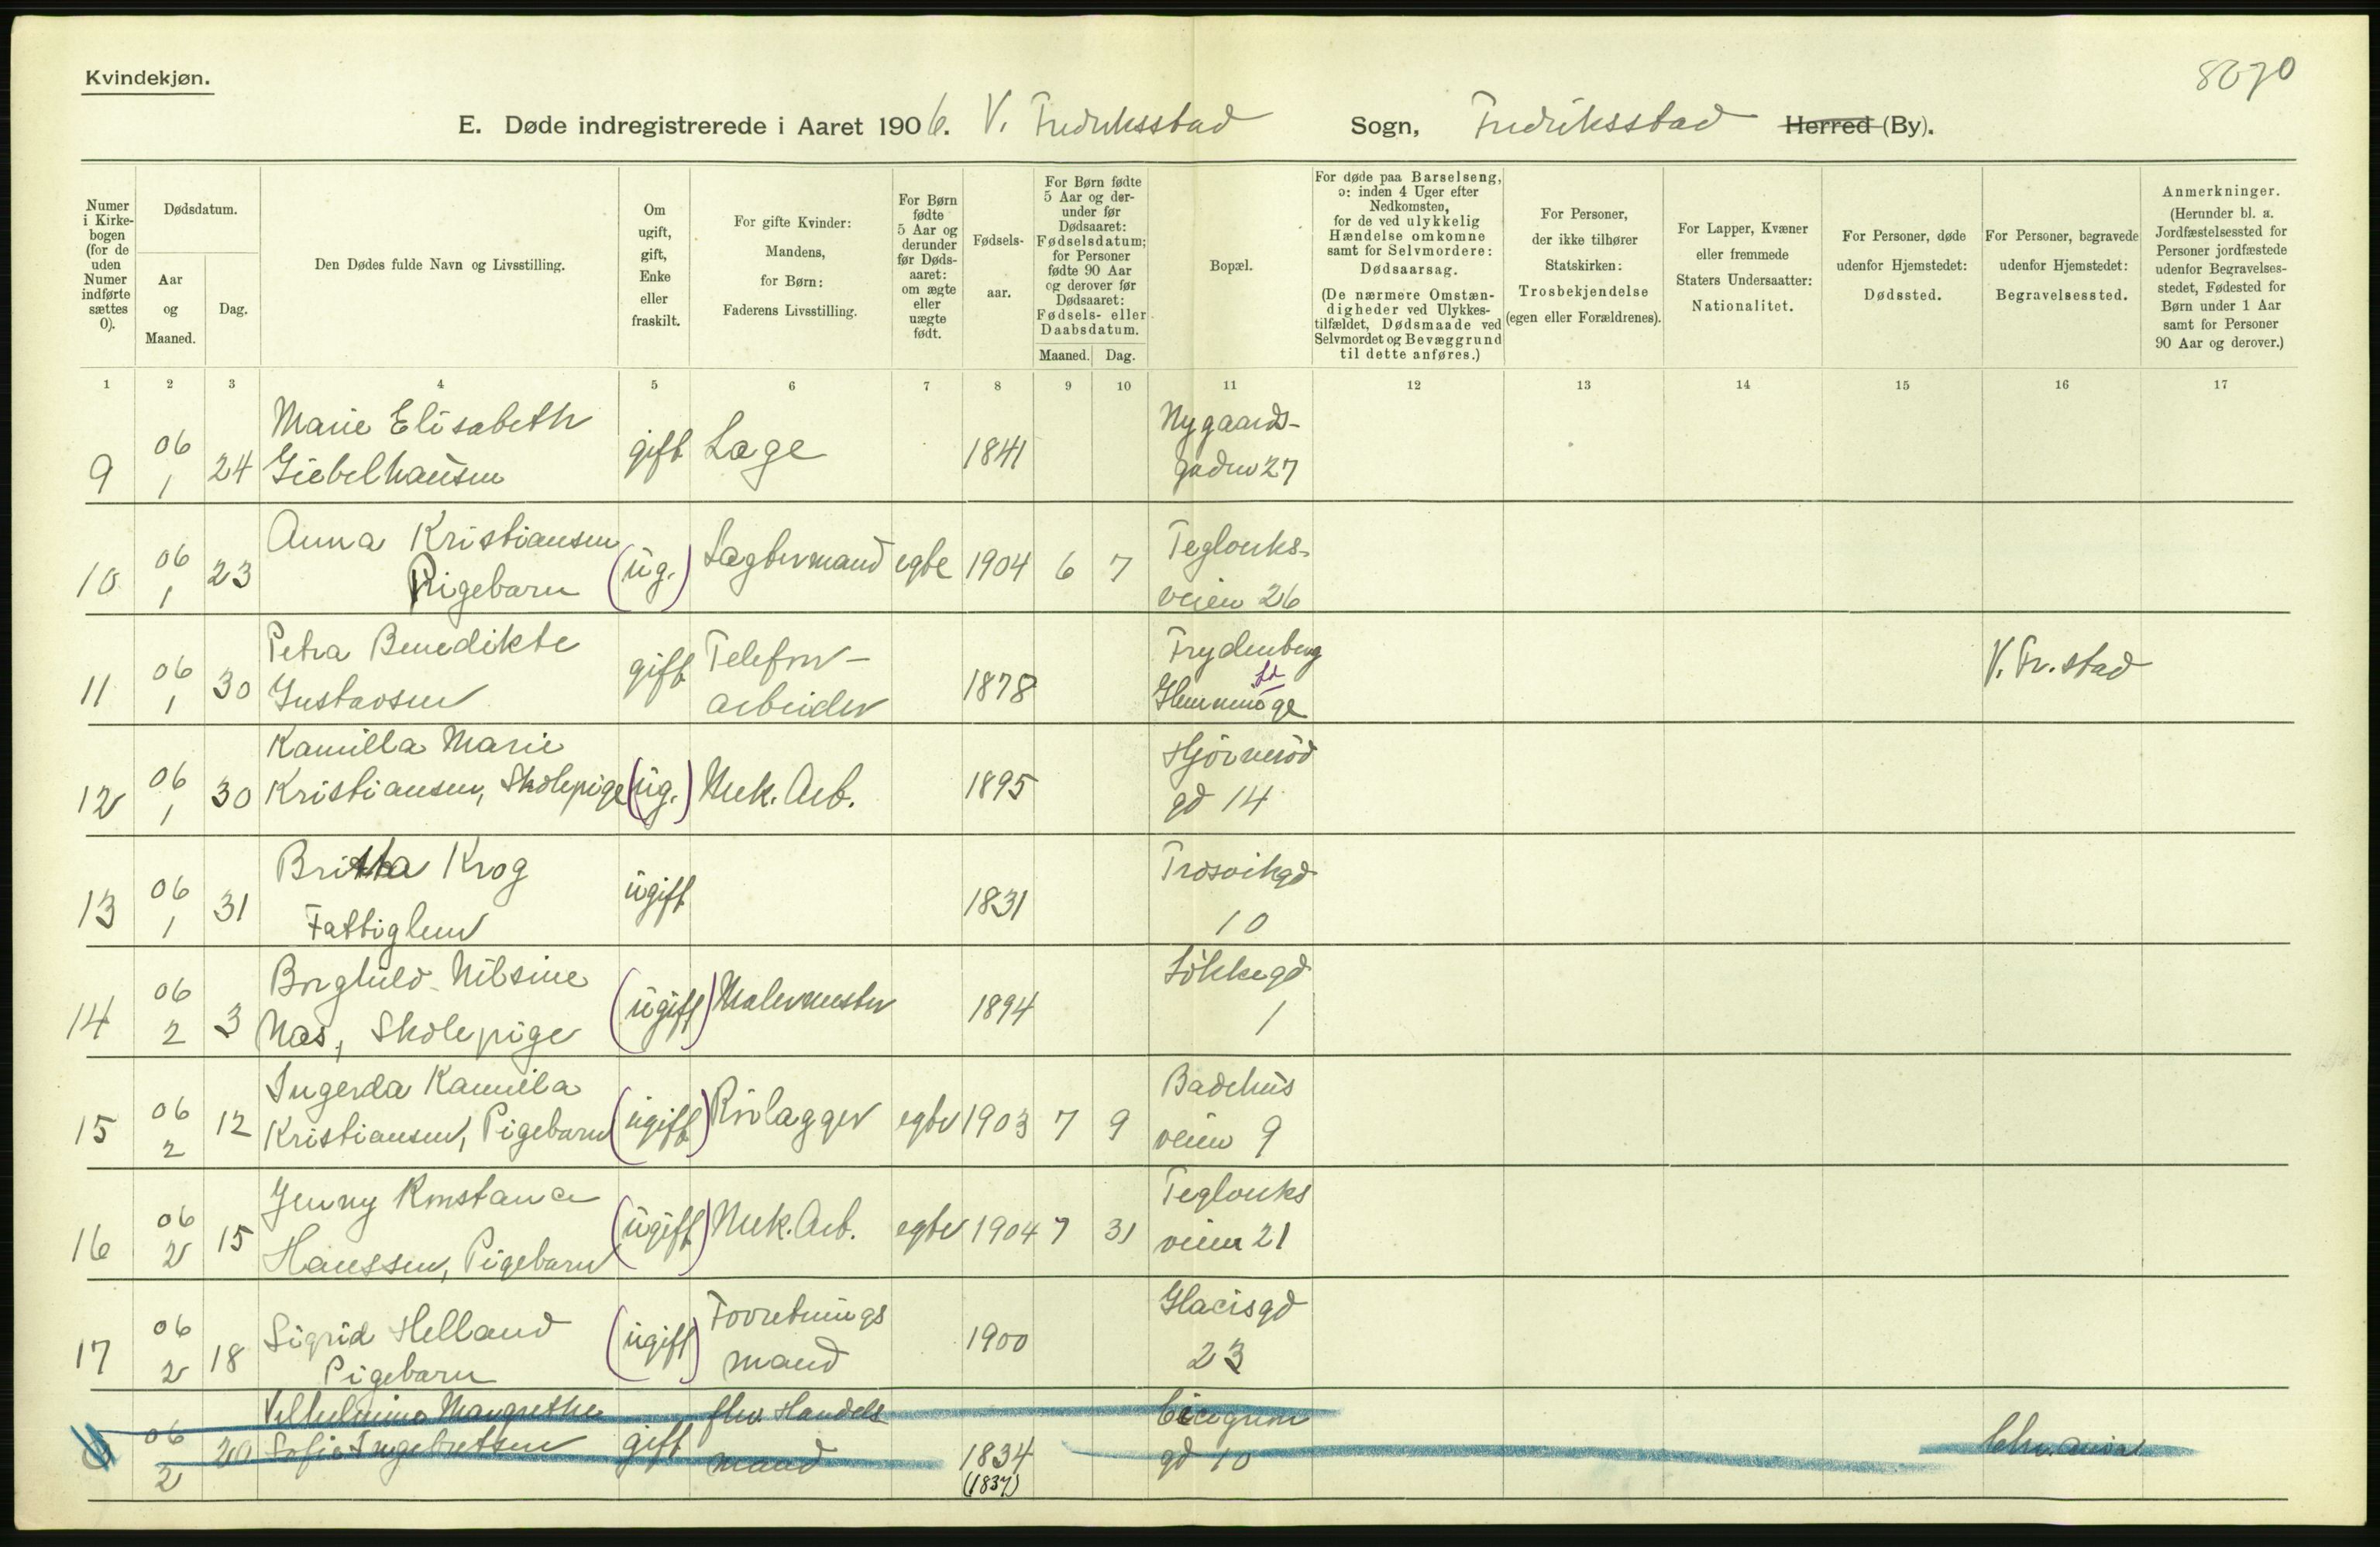 Kvindekjøn.
8070
E. Døde indregistrerede i Aaret 1906. V. Fredriksstad Sogn, Fredriksstad Herred (By).
Numer i Kirkebogen (for de uden Numer indførte sættes 0).
Dødsdatum.
Aar og Maaned.
Dag.
Den Dødes fulde Navn og Livsstilling.
Om ugift, gift, Enke eller fraskilt.
For gifte Kvinder: Mandens, for Børn: Faderens Livsstilling.
For Børn fødte 5 Aar og derunder før Dødsaaret: om ægte eller uægte født.
Fødselsaar.
For Børn fødte 5 Aar og derunder før Dødsaaret: Fødselsdatum; for Personer fødte 90 Aar og derover før Dødsaaret: Fødsels- eller Daabsdatum.
Maaned. Dag.
Bopæl.
For døde paa Barselseng, ɔ: inden 4 Uger efter Nedkomsten, for de ved ulykkelig Hændelse omkomne samt for Selvmordere: Dødsaarsag.
(De nærmere Omstændigheder ved Ulykkestilfældet, Dødsmaade ved Selvmordet og Bevæggrund til dette anføres.)
For Personer, der ikke tilhører Statskirken: Trosbekjendelse (egen eller Forældrenes).
For Lapper, Kvæner eller fremmede Staters Undersaatter: Nationalitet.
For Personer, døde udenfor Hjemstedet: Dødssted.
For Personer, begravede udenfor Hjemstedet: Begravelsessted.
Anmerkninger.
(Herunder bl. a. Jordfæstelsessted for Personer jordfæstede udenfor Begravelsesstedet, Fødested for Børn under 1 Aar samt for Personer 90 Aar og derover.)
1 2 3 4 5 6 7 8 9 10 11 12 13 14 15 16 17
9 06 1 24 Marie Elisabeth Giebelhausen gift Læge 1841 Nygaardsgaden 27
10 06 1 23 Anna Kristiansen Pigebarn (ug.) Lægtermand egte 1904 6 7 Teglverksveien 26
11 06 1 30 Petra Benedikte Gustavsen gift Telefonarbeider 1878 Frydenberg Glemminge V. Fr.stad
12 06 1 30 Kamilla Marie Kristiansen, Skolepige (ug.) Mek. Arb. 1895 gd 14
13 06 1 31 Britha Krog Fattiglem ugift 1831 Trosvikgd 10
14 06 2 3 Borghild Nilsine Næs, Skolepige (ugift) Malermester 1894 Løkkegd 1
15 06 2 12 Ingerda Kamilla Kristiansen, Pigebarn (ugift) Rørlægger egte 1903 7 9 Badehusveien 9
16 06 2 15 Jenny Konstance Hanssen, Pigebarn (ugift) Mek. Arb. egte 1904 7 31 Teglverksveien 21
17 06 2 18 Sigrid Helland Pigebarn (ugift) Forretningsmand 1900 Glacisgd 23
06 2 20 Vilhelmine Margrethe Sofie Ingebretsen gift fhv. Handelsmand 1834 (1837) Cicignongd 10 Chr.ania